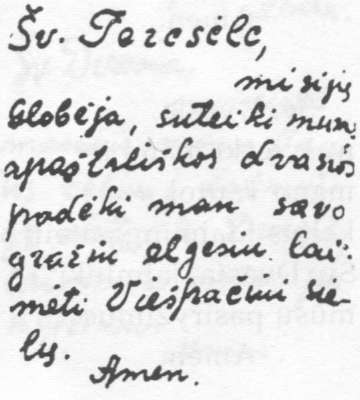 Šv. Teresėle,
misijų
Globėja, suteiki mum
apaštališkos dvasios
padėki man savo
gražiu elgesiu lai-
mėti Viešpačiui sie-
lų.
Amen.